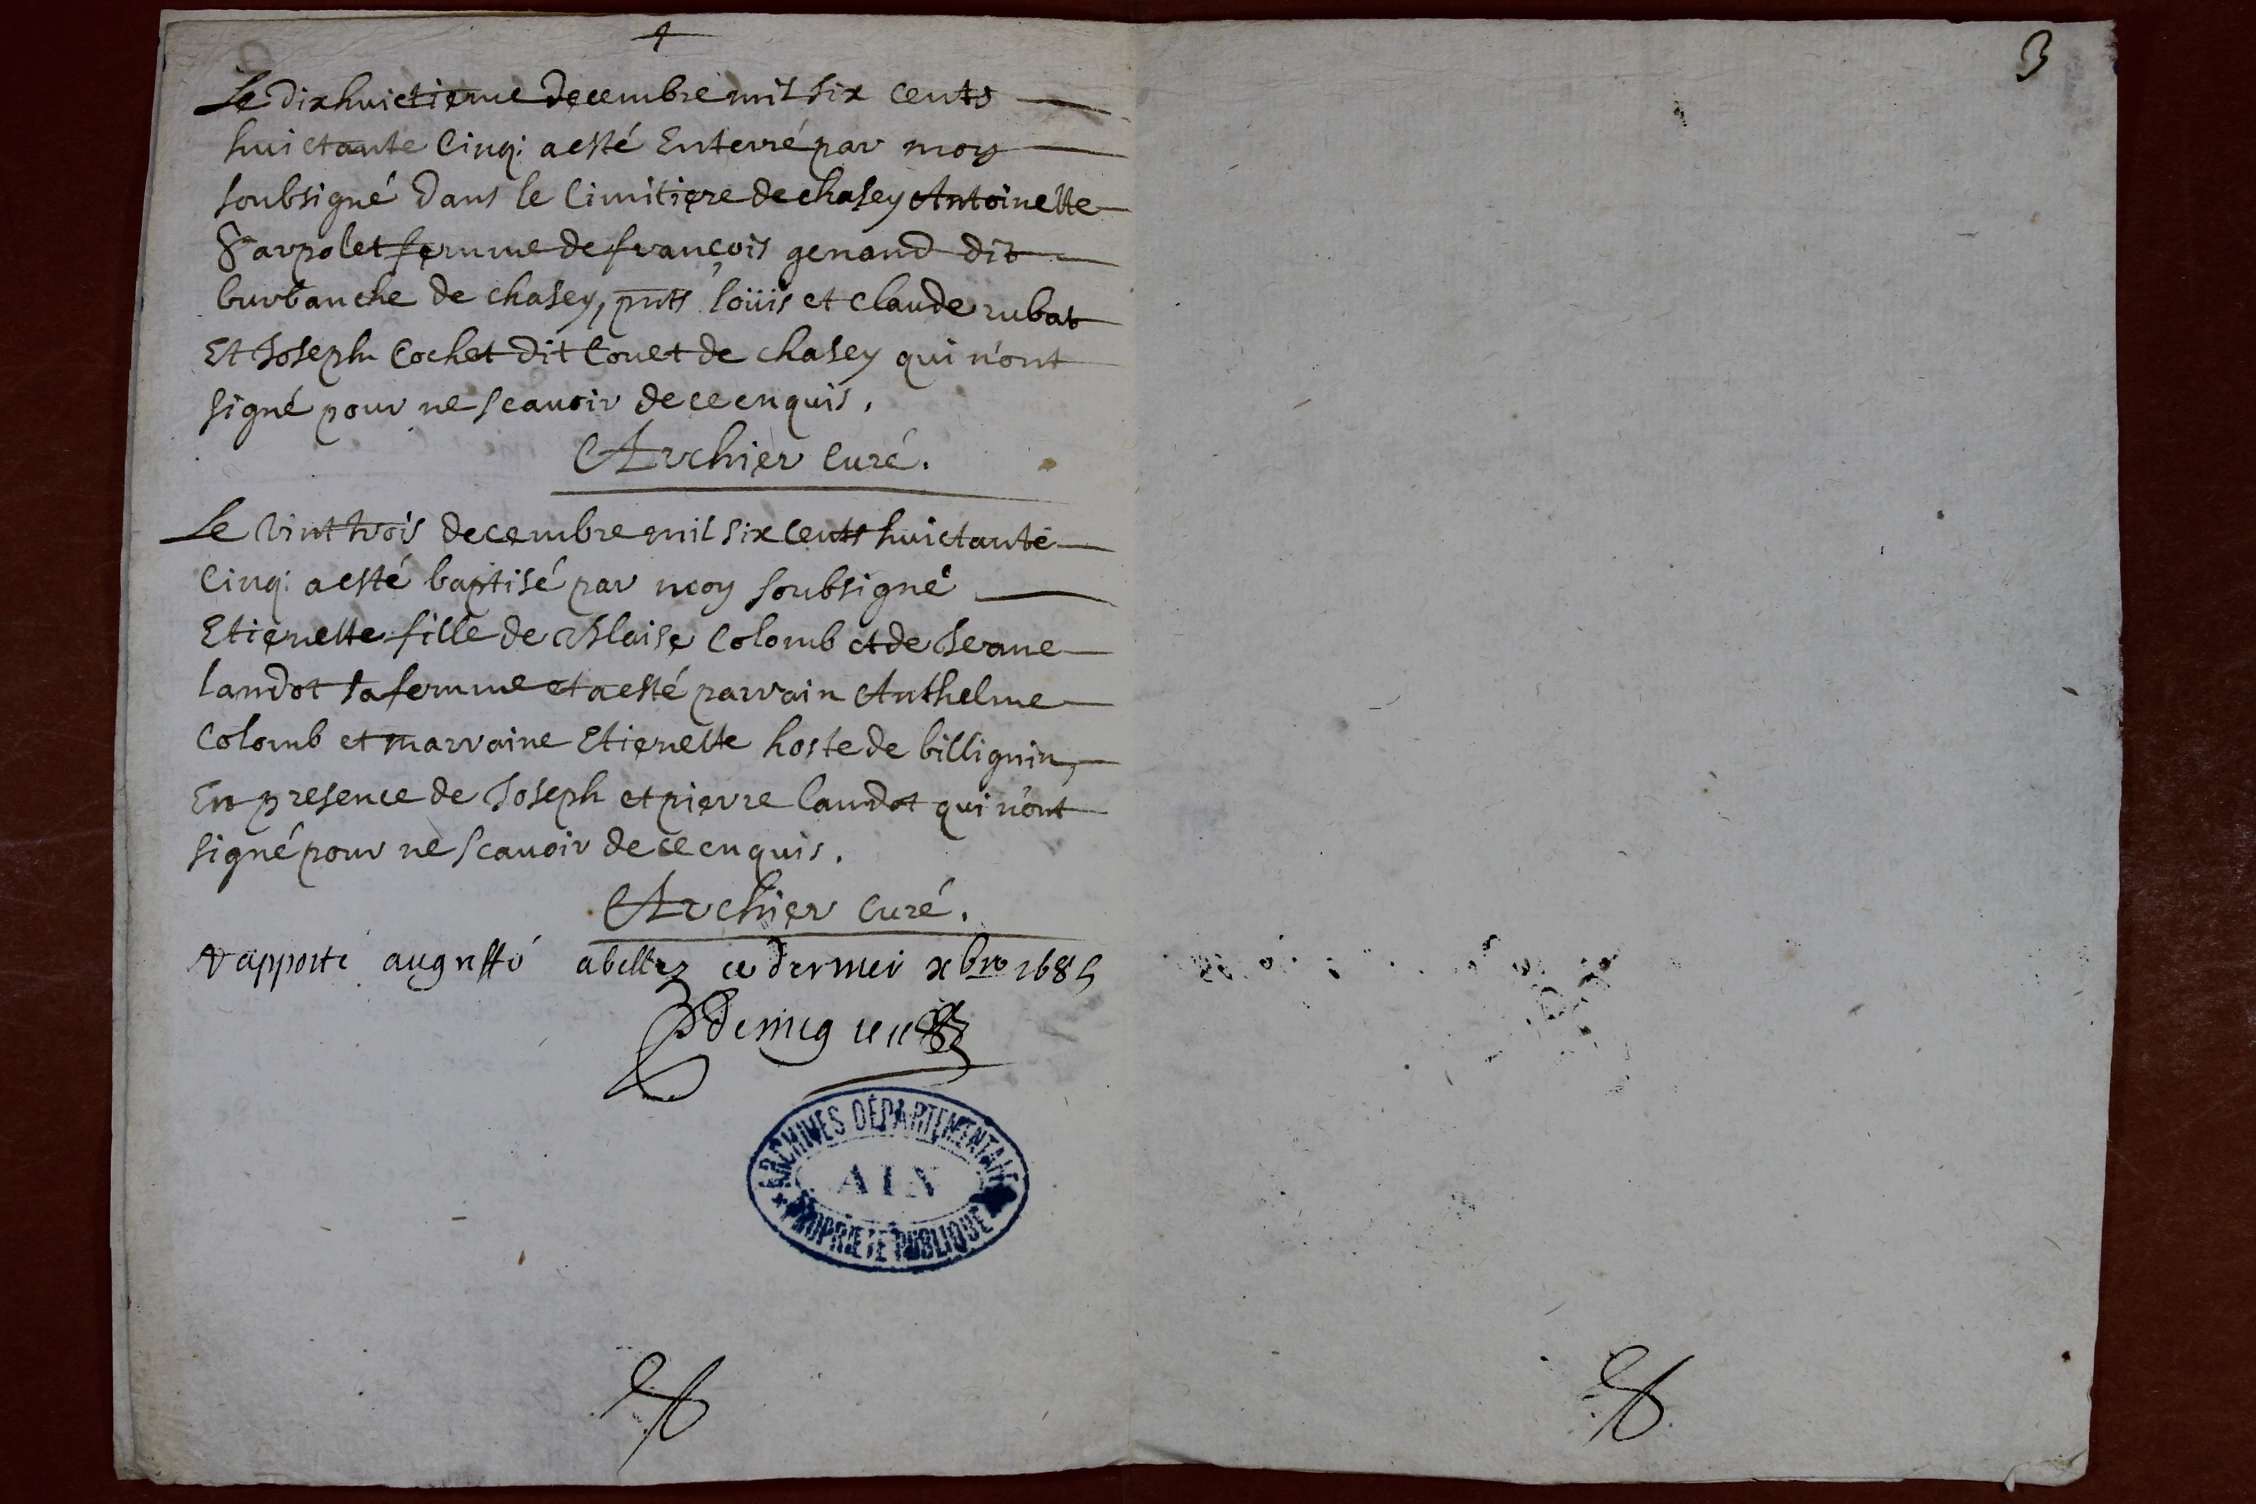 Le dixhuictieme decembre mil six cents
huictante Cinq: a esté Enterré par moy
soubsigné dans le Cimitiere de chasey Antoinette
Sarpolet femme de françois genand dit
burbanche de chasey, pnts loüis et claude rubat
Et Joseph Cochet dit Couet de chasey qui n'ont
signé pour ne scauoir de ce enquis.
Archier Curé.
Le Vint trois decembre mil six Cents huictante
Cinq: a esté baptisé par moy soubsigné
Etienette fille de Blaise Colomb et de Jeane
landot sa femme et a esté parrain Anthelme
Colomb et marraine Etienette hoste de billignin,
En presence de Joseph et pierre landot qui n'ont
signé pour ne scauoir de ce enquis.
Archier Curé.
rapporté au greffé a belley ce dernier xbre 1685
3
ARCHIVES DÉPARTEMENTALES
AIN
PROPRIÉTÉ PUBLIQUE